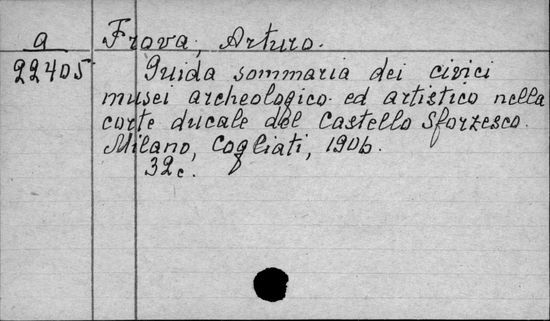 a Frova, Arturo.
22405 Guida sommaria dei civici
musei archeologico ed artistico nella
corte ducale del Castello Sforzesco.
Milano, Cogliati, 1906.
32c.